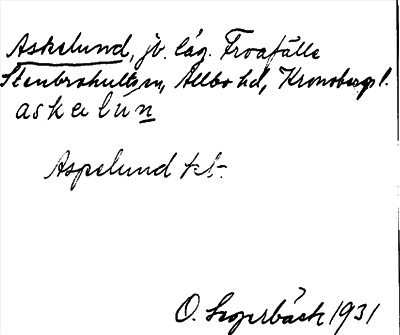 Askelund, jb. läg. Froafälle
Stenbrohults sn, Allbo hd, Kronobergs l.
askelun
Aspelund kt.
O. 1931